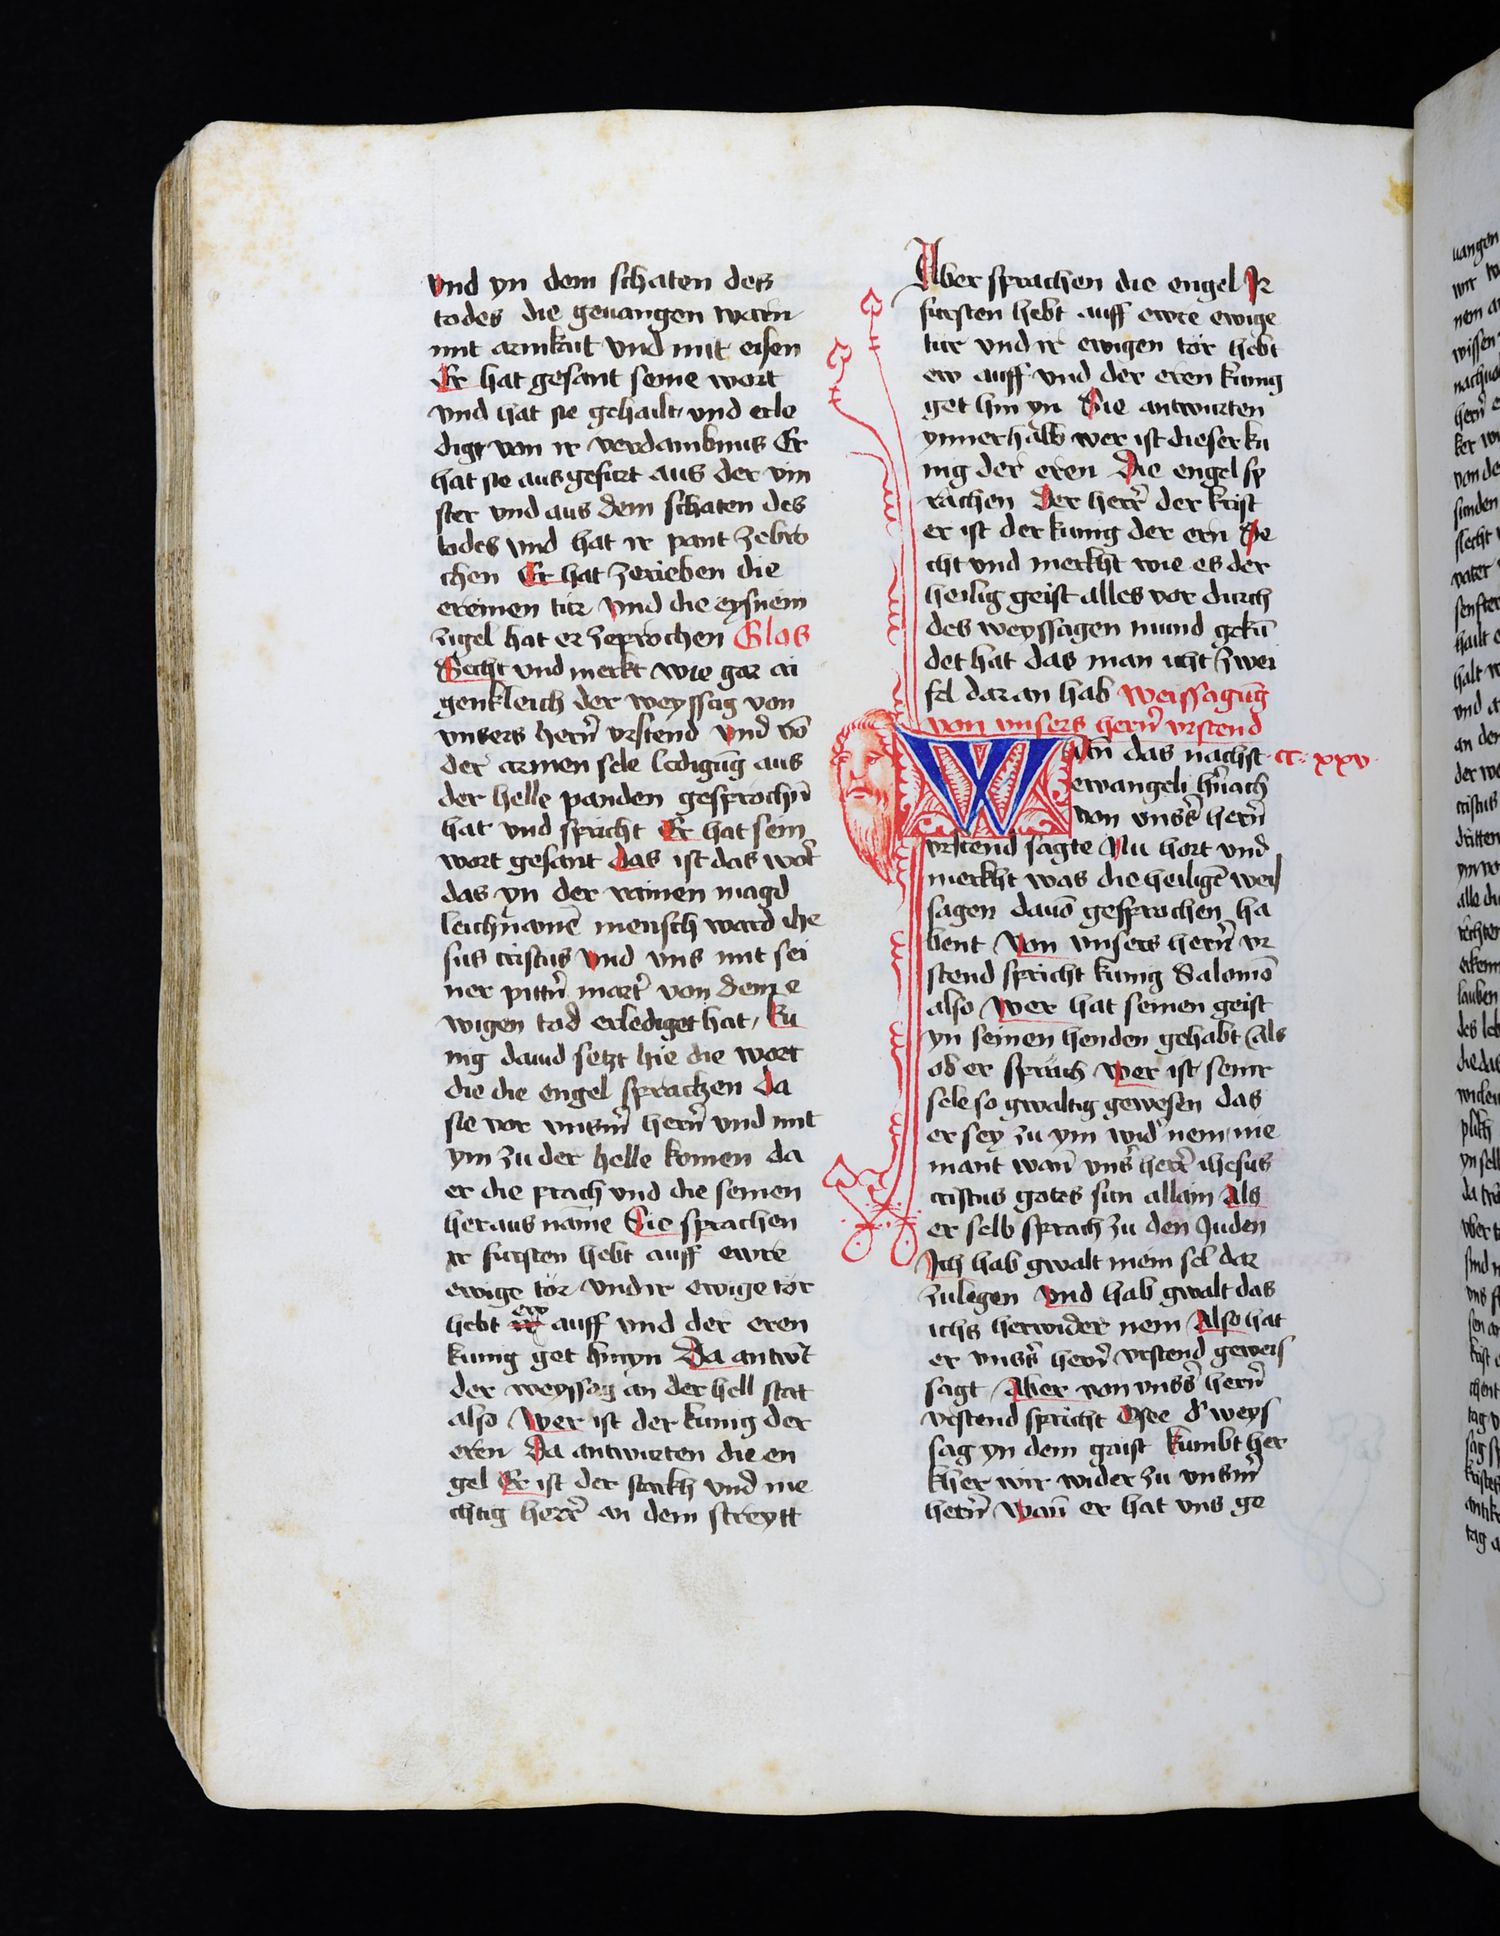 vnd yn dem schaten des
todes die geuangen warn
mit armkait vnd mit eisen
Er hat gesant seine wort
vnd hat sie gehailt vnd erle
digt von ir verdambnus Er
hat sie aus gefurt aus der vin
ster vnd aus dem schaten des
todes vnd hat ir pant zebro
chen Er hat zerieben die
ereinen tür vnd die eysnein
rigel hat er zeprochen Glos
Secht vnd merkt wie gar ai
genkleich der weyssag von
vnsers hern̄ vrstend vnd vō
der armen sele ledigūg aus
der helle panden gesprochn̄
hat vnd spricht Er hat sein
wort gesant das ist das wort
das yn der rainen magd
leichnamē mensch ward ihe
sus cristus vnd vns mit sei
ner pittn̄ mart̄ von dem e
wigen tod erlediget hat, ku
nig dauid setzt hie die wort
die die engel sprachen da
sie vor vnsm̄ hern̄ vnd mit
ym zu der helle komen da
er die prach vnd die seinen
heraus nāme Sie sprachen
ir fursten hebt auff ewre
ewige tör vnd ir ewige tör
hebt ew auff vnd der eren
kunig get hinyn Da antwᵒt
der weyssag an der hell stat
also Wer ist der kunig der
eren Da antwurten die en
gel Er ist der starkh vnd me
chtig herr̄ an dem streytt
Aber sprachen die engel Ir
fursten hebt auff ewre ewige
tür vnd ir ewigen tör hebt
ew auff vnd der eren kunig
get hin yn Sie antwurten
ynnerhalb wer ist dieser ku
nig der eren Die engel sp
rachen Der herr̄ der krist
er ist der kunig der ern Se
cht vnd merkht wie es der
heilig geist alles vor durch
des weyssagen mund gekū
det hat das man icht zwei
fel daran hab Weissagūg
von vnsers hern̄ vrstend
Wan̄ das nachst cc. xxv.
ewangeli hn̄ach
von vnsers̄ hern̄
vrstend sagte Nu hort vnd
merkht was die heiligē weis
sagen dauō gesprochen ha
bent Von vnsers hern̄ vr
stend spricht kunig Salomō
also Wer hat seinen geist
yn seinen henden gehabt als
ob er sprach Wer ist seinr
sele so gwaltig gewesen das
er sey zu ym wid̄ nem nie
mant wan̄ vns̄ herr̄ ihesus
cristus gotes sun allain Als
er selb sprach zu den Juden
Ich hab gwalt mein sel dar
zulegen vnd hab gwalt das
ichs herwider nem Also hat
er vnss̄ hern̄ vrstend geweis
sagt Aber von vnss̄ hern̄
vrstend spricht Osee d̄ weys
sag yn dem gaist kumbt her
kher wir wider zu vnsm̄
hern̄ wan̄ er hat vns ge